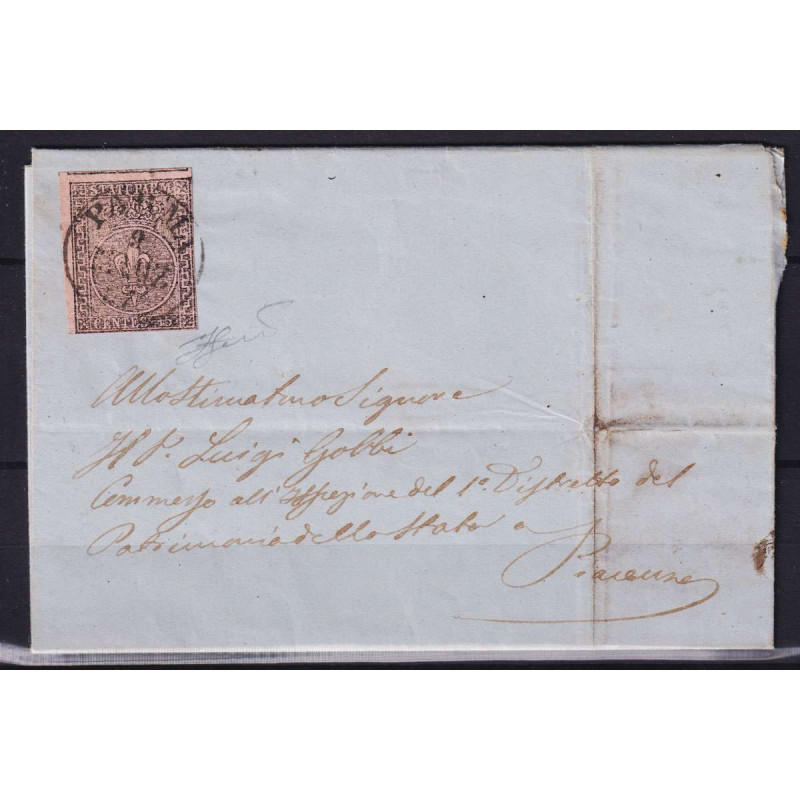 STATI PARM.
PARMA
9
CENTES. 15
All Ostimatmo Signore
Il S. Luigi Gobbi
Commesso all' Ispezione del 1º Distretto del
Patrimonio dello Stato a
Piacenza